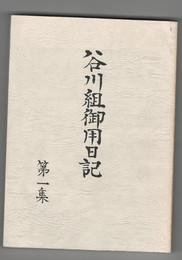 谷川組御用日記
第一集